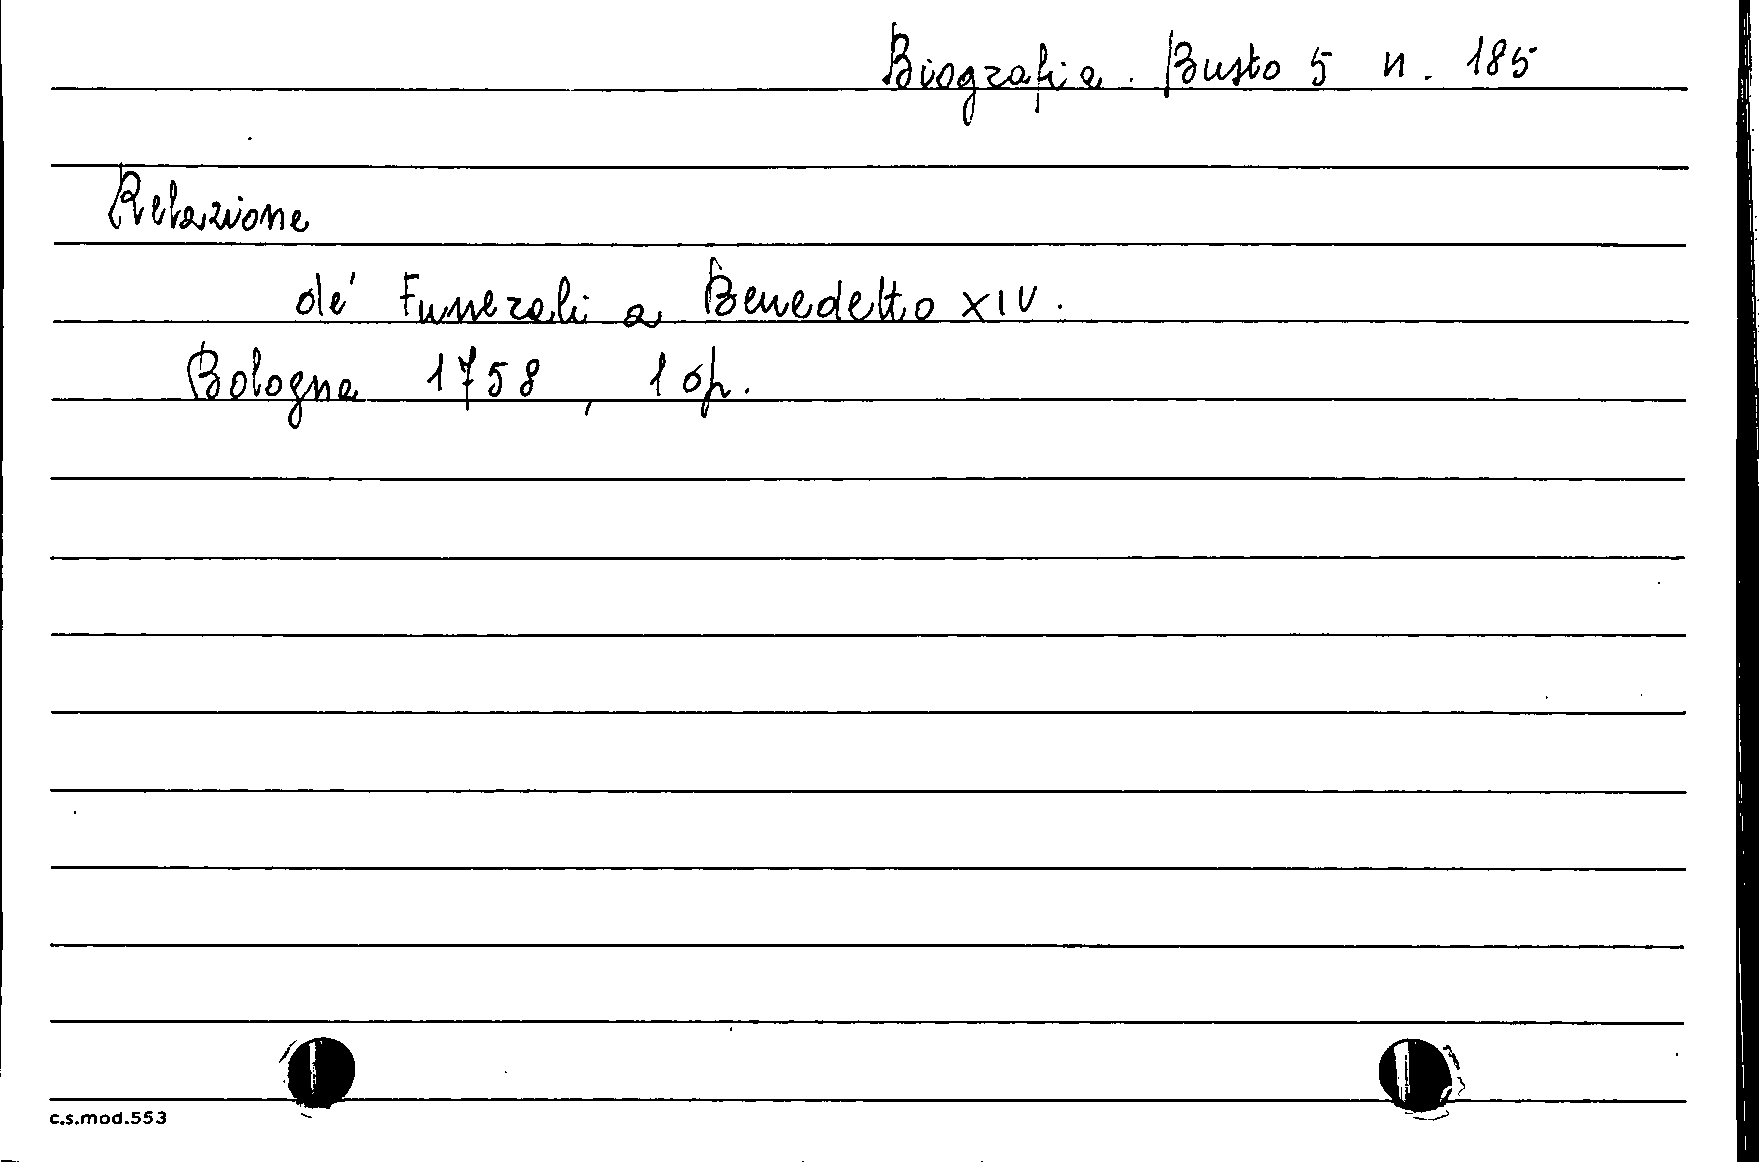 Biografia. Busto 5 n. 185
Relazione
de' Funerali a Benedetto XIV.
Bologna 1758, 1 op.
c.s.mod.553